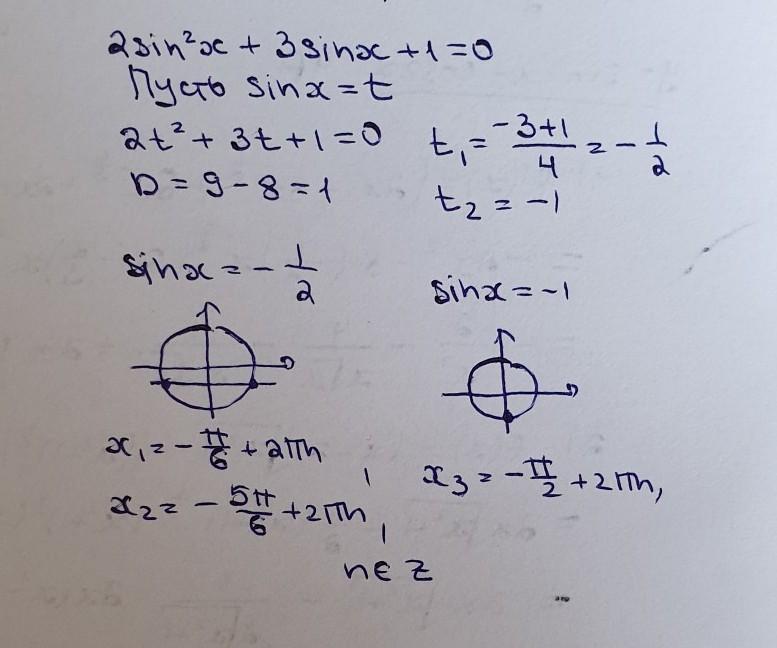 2sin²x + 3sinx + 1 = 0
Пусть sinx = t
2t² + 3t + 1 = 0
D = 9 - 8 = 1
t₁ = (-3+1)/4 = - 1/2
t₂ = -1
sinx = - 1/2
sinx = -1
x₁ = - π/6 + 2πn,
x₂ = - 5π/6 + 2πn,
x₃ = - π/2 + 2πn,
n ∈ Z